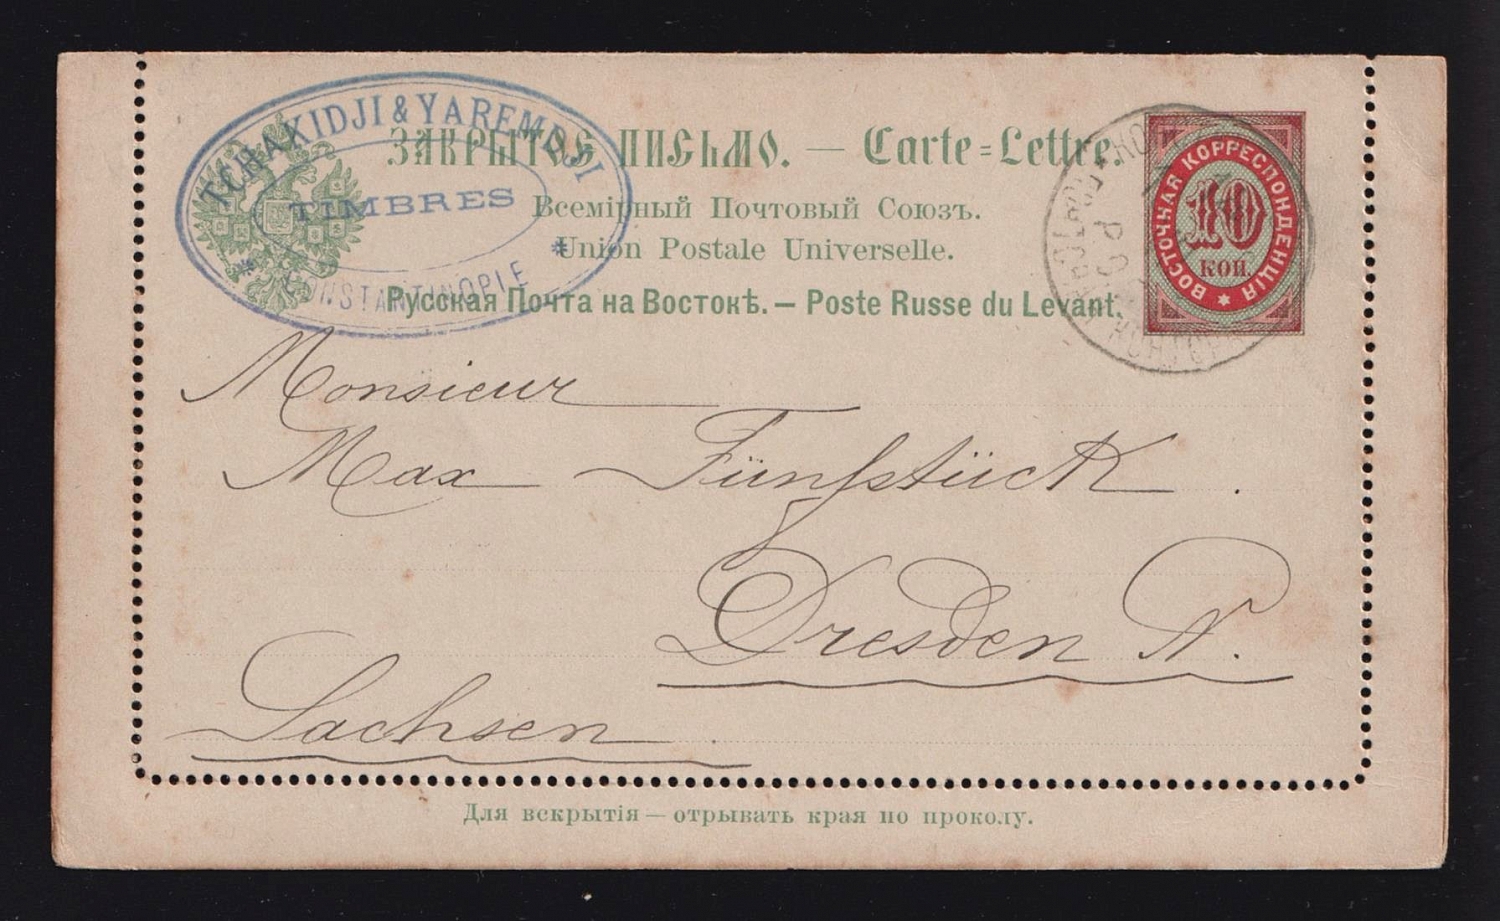 TCHAKIDJI & YAREMDJI
TIMBRES
* CONSTANTINOPLE *
ЗАКРЫТОЕ ПИСЬМО. — Carte=Lettre.
Всемірный Почтовый Союзъ.
Union Postale Universelle.
Русская Почта на Востокѣ. — Poste Russe du Levant.
ВОСТОЧНАЯ КОРРЕСПОНДЕНЦІЯ
10
КОП.
Monsieur
Max Fünfstück.
Dresden N.
Sachsen.
Для вскрытія — отрывать края по проколу.